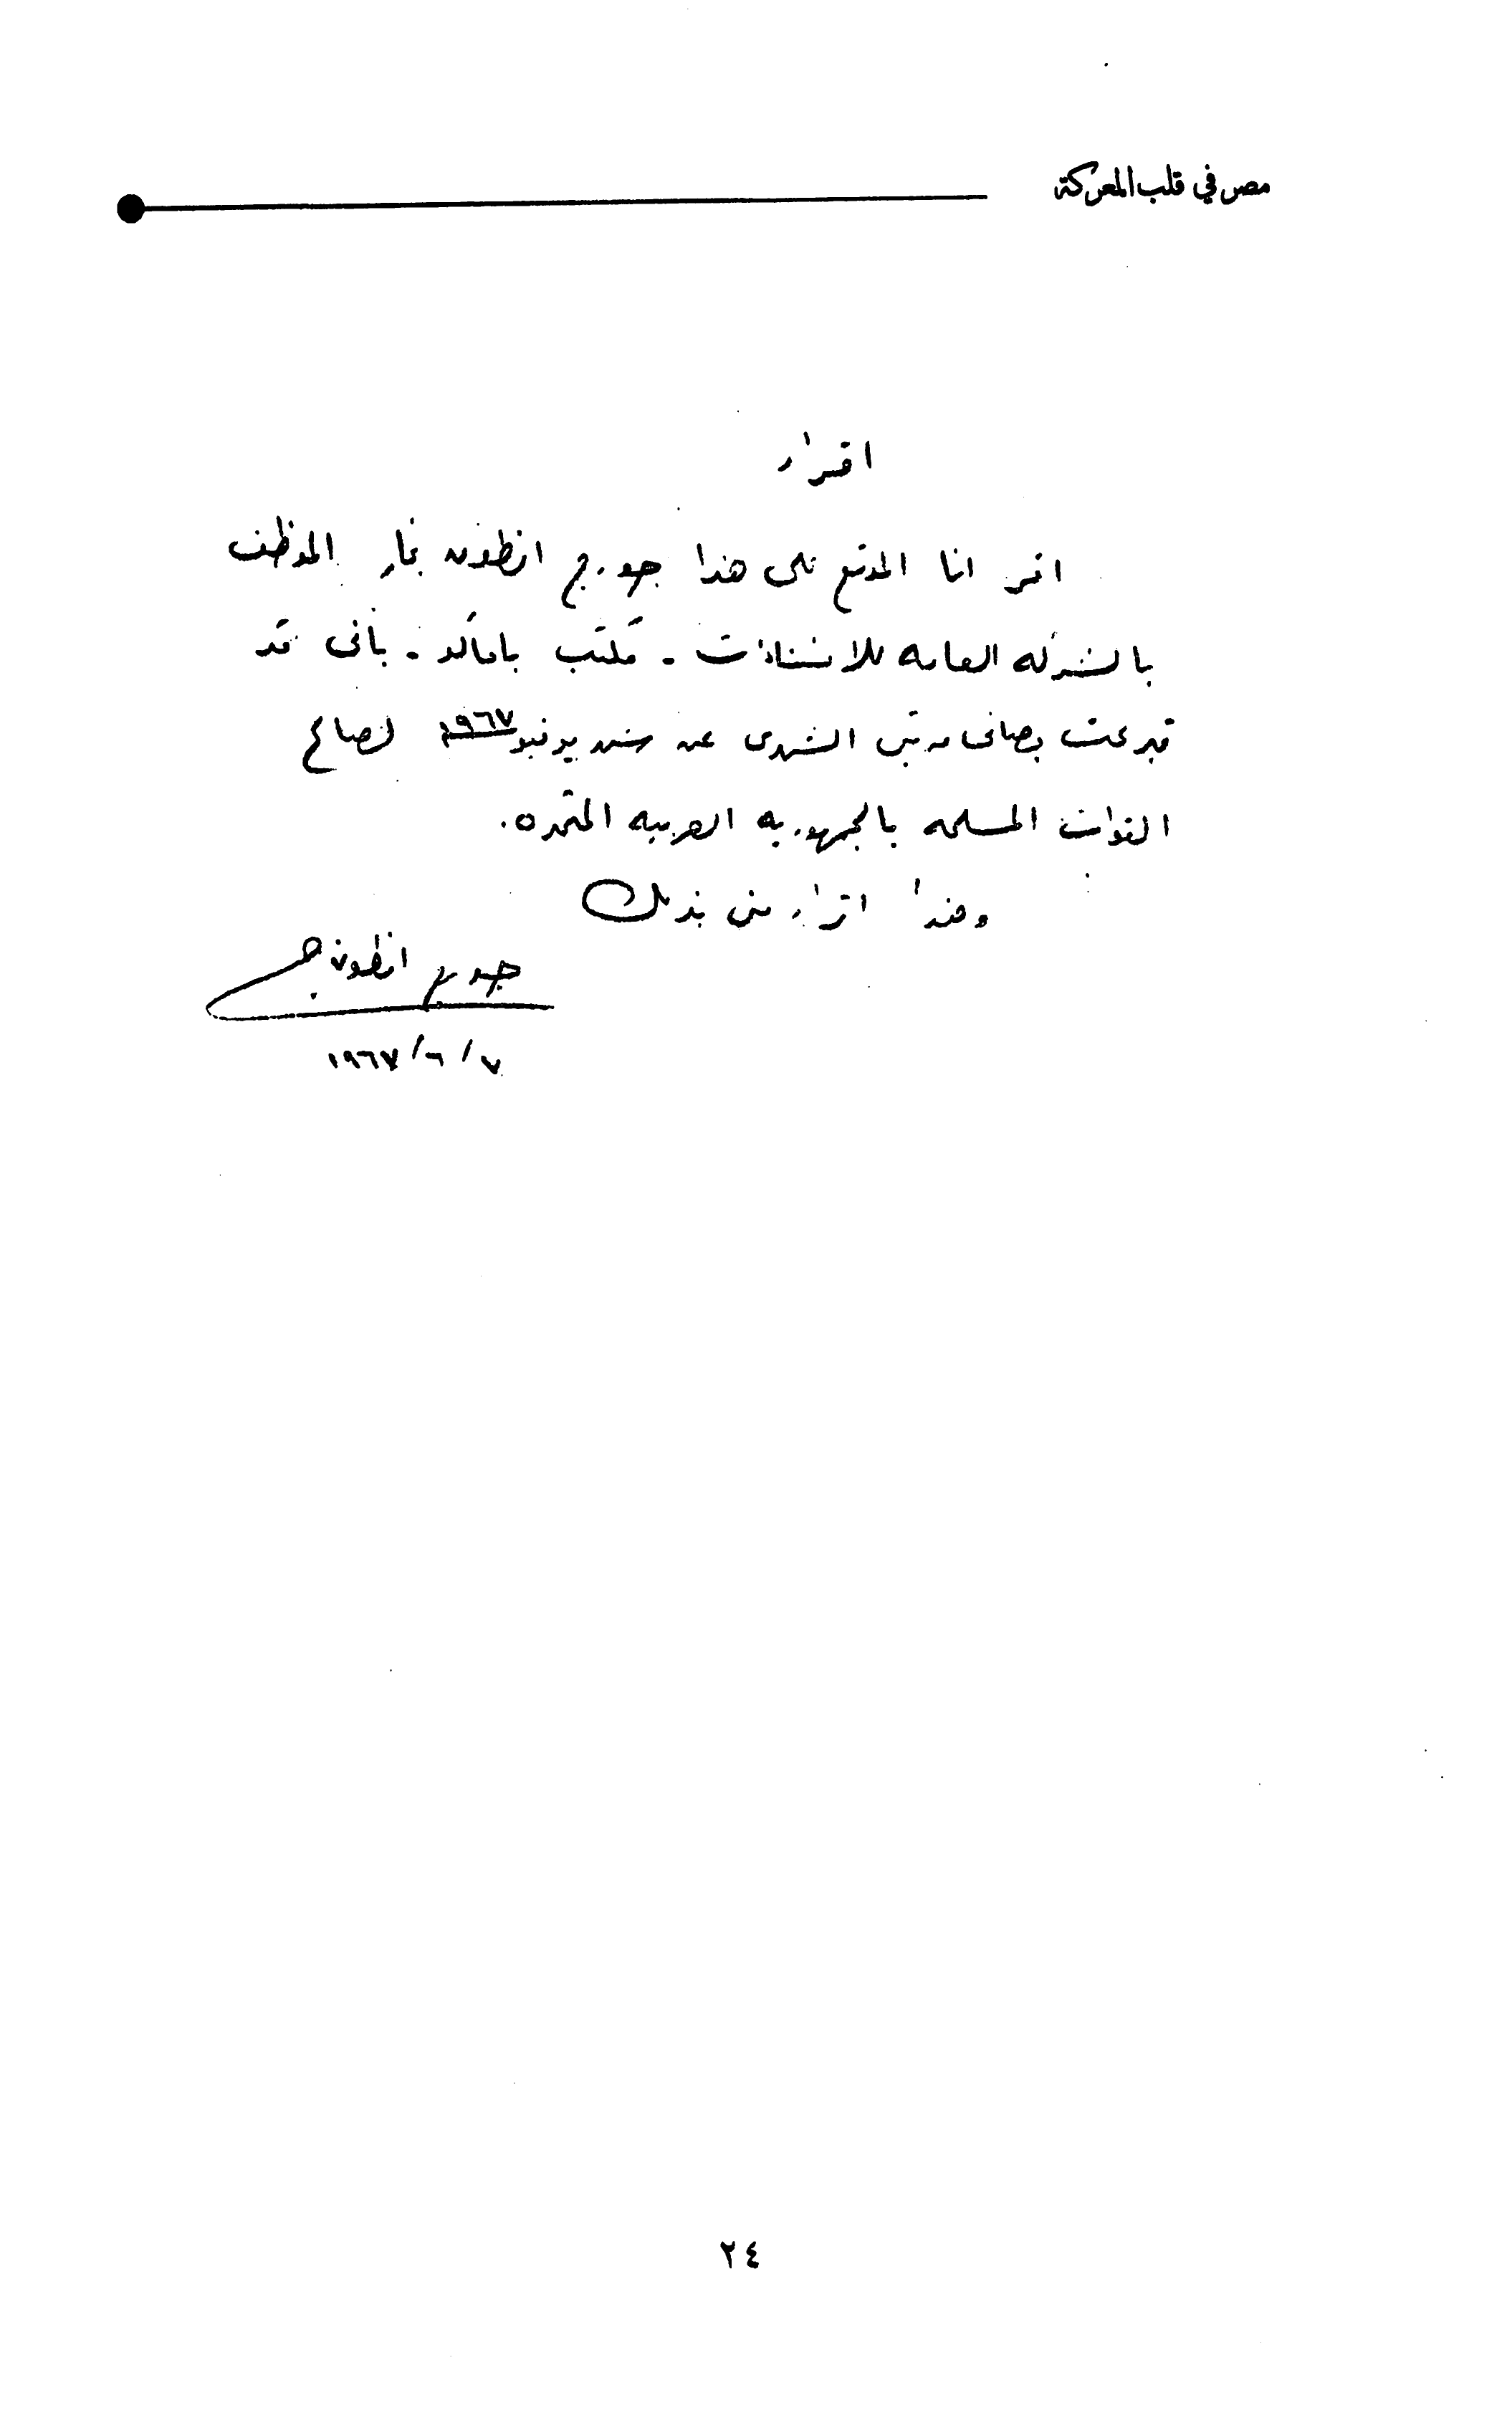 مصر في قلب المعركة
اقرار
اقر انا الموقع على هذا جورج انطون نجار الموظف
بالشركه العامه للانشاءات - مكتب باماكو - بأنى قد
تبرعت بصافى مرتبى الشهرى عن شهر يونيو ١٩٦٧ لصالح
القوات المسلحه بالجمهوريه العربيه المتحده.
وهذا اقرار منى بذلك
جورج انطون
٧/٦/١٩٦٧
٢٤